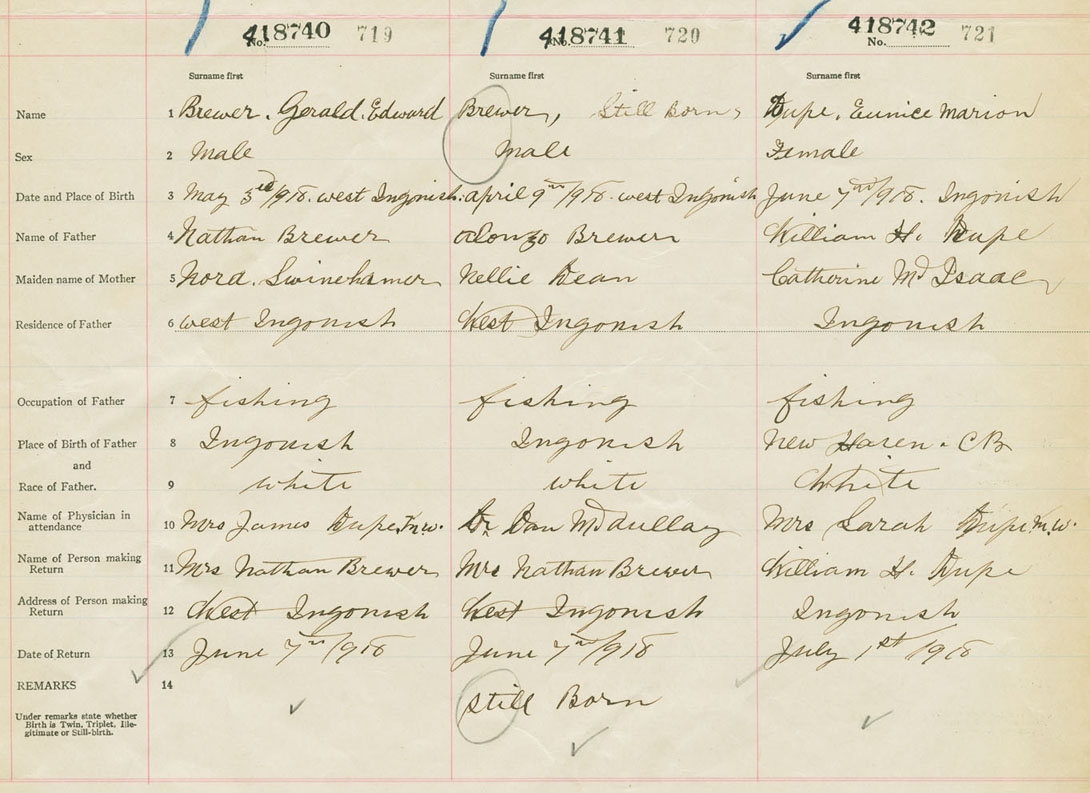 No. 418740 719 No. 418741 720 No. 418742 721
Surname first Surname first Surname first
Name 1 Brewer, Gerald Edward Brewer, Still Born Dupe, Eunice Marion
Sex 2 Male Male Female
Date and Place of Birth 3 May 3rd/918. west Ingonish. april 9th/918. west Ingonish June 7th/918. Ingonish
Name of Father 4 Nathan Brewer alonzo Brewer William H. Dupe
Maiden name of Mother 5 Nord. Swinehamer Nellie Dean Catherine Mc Isaac
Residence of Father 6 west Ingonish West Ingonish Ingonish
Occupation of Father 7 fishing fishing fishing
Place of Birth of Father 8 Ingonish Ingonish New Haven. CB
and
Race of Father. 9 white white White
Name of Physician in
attendance 10 Mrs James Dupe M.W. Dr Dan Mrs Sarah Dupe M.W.
Name of Person making
Return 11 Mrs Nathan Brewer Mrs Nathan Brewer William H. Dupe
Address of Person making
Return 12 West Ingonish West Ingonish Ingonish
Date of Return 13 June 7th/918 June 7th/918 July 1st/918
REMARKS 14 Still Born
Under remarks state whether
Birth is Twin, Triplet, Ille-
gitimate or Still-birth.